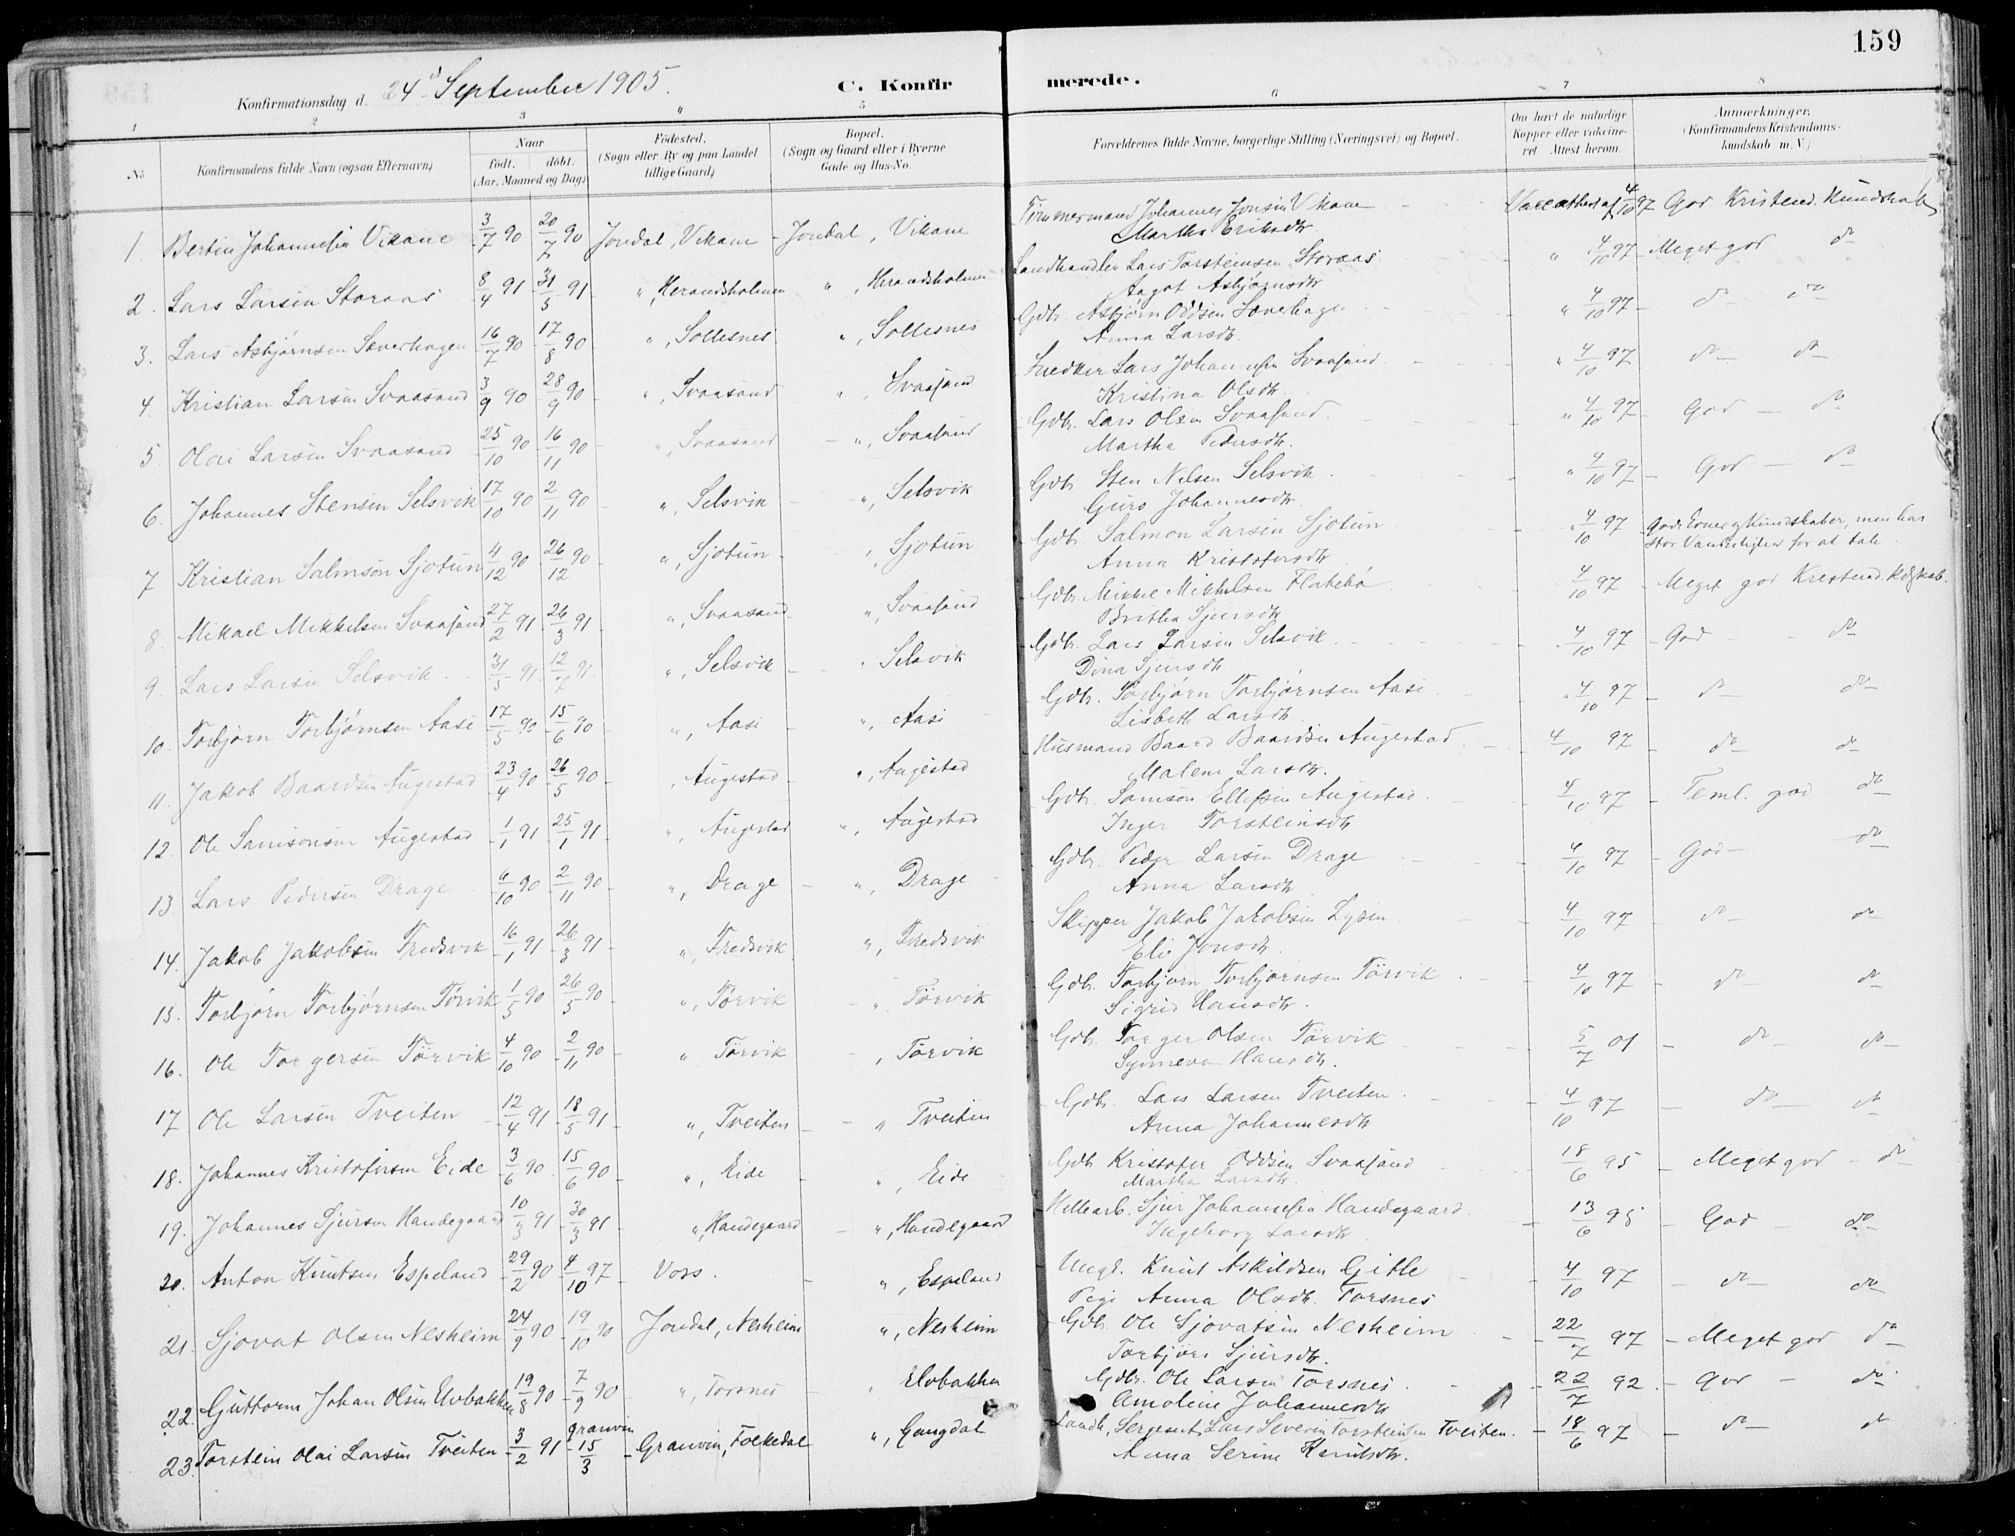 159
Konfirmationsdag d. 24de September 1905.
C. Konfirmerede.
1 2 3 4 5 6 7 8
No.
Konfirmandens fulde Navn (ogsaa Efternavn)
Naar født. døbt. (Aar, Maaned og Dag)
Fødested. (Sogn eller By og paa Landet tillige Gaard)
Bopæl. (Sogn og Gaard eller i Byerne Gade og Hus-No.
Forældrenes fulde Navne, borgerlige Stilling (Næringsvei) og Bopæl.
Om havt de naturlige Kopper eller vaccineret Attest herom.
Anmærkninger. (Konfirmandens Kristendomskundskab m. V.)
1. Bertin Johannesen Vikane 3/7 90 20/7 90 Jondal, Vikane - Jondal, Vikane Tømmermand Johannes Jonsen Vikane Vaccattest af 4/10 97 God Kristend. Kundskab
Martha Eriksdtr.
2. Lars Larsen Storaas 8/4 91 31/5 91 ", Herandsholmen ", Herandsholmen Landhandler Lars Torsteinsen Storaas " 4/10 97 - Meget god do
Aagot Asbjørnsdtr
3. Lars Asbjørnsen Sæverhagen 16/7 90 17/8 90 ", Sollesnes ", Sollesnes Gdbr. Asbjørn Oddsen Sæverhagen " 4/10 97 - do do
Anna Larsdtr.
4. Kristian Larsen Svaasand 3/9 90 28/9 90 ", Svaasand ", Svaasand Snedker Lars Johannesen Svaasand " 4/10 97 do do
Kristina Olsdtr
5. Olai Larsen Svaasand 25/10 90 16/11 90 ", Svaasand ", Svaasand Gdbr. Lars Olsen Svaasand. " 4/10 97 God - do
Martha Pedersdtr.
6. Johannes Stensen Selsvik 17/10 90 2/11 90 ", Selsvik ", Selsvik Gdbr. Sten Nilsen Selsvik. " 4/10 97 - God - do
Guro Johannesdtr
7 Kristian Salmson Sjotun 4/12 90 26/12 90 ", Sjotun ", Sjotun Gdbr. Salmon Larsen Sjotun " 4/10 97 gode Evner og Kundskaber, men har
Anna Kristofersdtr stor Vanskelighed for at tale.
8. Mikael Mikkelsen Svaasand 27/2 91 26/3 91 ", Svaasand ", Svaasand Gdbr. Mikkel Mikkelsen Flatebø 4/10 97 - Meget god Kristend. kdskab.
Britha Sjursdtr
9. Lars Larsen Selsvik 31/5 91 12/7 91 ", Selsvik " Selsvik Gdbr. Lars Larsen Selsvik 4/10 97 - God do
Dina Sjursdtr
10. Torbjørn Torbjørnsen Aase 17/5 90 15/6 90 ", Aase ", Aase Gdbr. Torbjørn Torbjørnsen Aase 4/10 97 - do do
Lisbeth Larsdtr.
11. Jakob Baardsen Augestad 23/4 90 26/5 90 , Augestad ", Augestad Husmand Baard Baardsen Augestad 4/10 97 - do do
Malene Larsdtr.
12. Ole Samsonsen Augestad 1/1 91 25/1 91 ", Augestad ", Augestad Gdbr. Samson Ellefsen Augestad. 4/10 97 - Teml. god do
Inger Torsteinsdtr
13. Lars Pedersen Drage 6/10 90 2/11 90 ", Drage ", Drage Gdbr. Peder Larsen Drage 4/10 97 - God - do
Anna Larsdtr
14. Jakob Jakobsen Tredsvik 16/1 91 26/3 91 ", Tredsvik ", Tredsvik Skipper Jakob Jakobsen Lysen 4/10 97 - do do
Eli Jonsdtr.
15. Torbjørn Torbjørnsen Tørvik 1/5 90 26/5 90 ", Tørvik " Tørvik Gdbr. Torbjørn Torbjørnsen Tørvik 4/10 97 - do do
Sigrid Hansdtr.
16. Ole Torgersen Tørvik 4/10 90 2/11 90 " Tørvik , Tørvik Gdbr. Torger Olsen Tørvik 5/7 01 - do do
Synneva Hansdtr.
17 Ole Larsen Tveiten 12/4 91 18/5 91 ", Tveiten " Tveiten Gdbr. Lars Larsen Tveiten. 4/10 97 - do do
Anna Johannesdtr
18. Johannes Kristofersen Eide 3/6 90 15/6 90 ", Eide ", Eide Gdbr Kristofer Oddsen Svaasand 18/6 95 - Meget god - do
Martha Larsdtr.
19. Johannes Sjursen Handegaard 10/3 91 30/3 91 ", Handegaard ", Handegaard Hellearb. Sjur Johannesen Handegaard 13/6 95 - God - do
Ingeborg Larsdtr.
20. Anton Knutsen Espeland 29/2 90 4/10 97 Voss. ", Espeland Ungk. Knut Askildsen Gitle 4/10 97 - do do
Pige Anna Olsdtr. Torsnes
21. Sjovat Olsen Nesheim 24/9 90 19/10 90 Jondal, Nesheim ", Nesheim Gdbr. Ole Sjovatsen Nesheim 22/7 97 - Meget god do
Torbjørg Sjursdtr.
22. Guttorm Johan Olsen Elvbakken 19/8 90 7/9 90 ", Torsnes , Elvbakken Gdbr. Ole Larsen Torsnes 22/7 92 - God - do
Amoline Johannesdtr
23. Torstein Olai Larsen Tveiten 3/2 91 Granvin 15/3 Granvin, Folkedal ", Gangdal Landh, Sergeant, Lars Severin Torsteinsen Tveiten. 18/6 97 - do do
Anna Serine Knutsdtr.